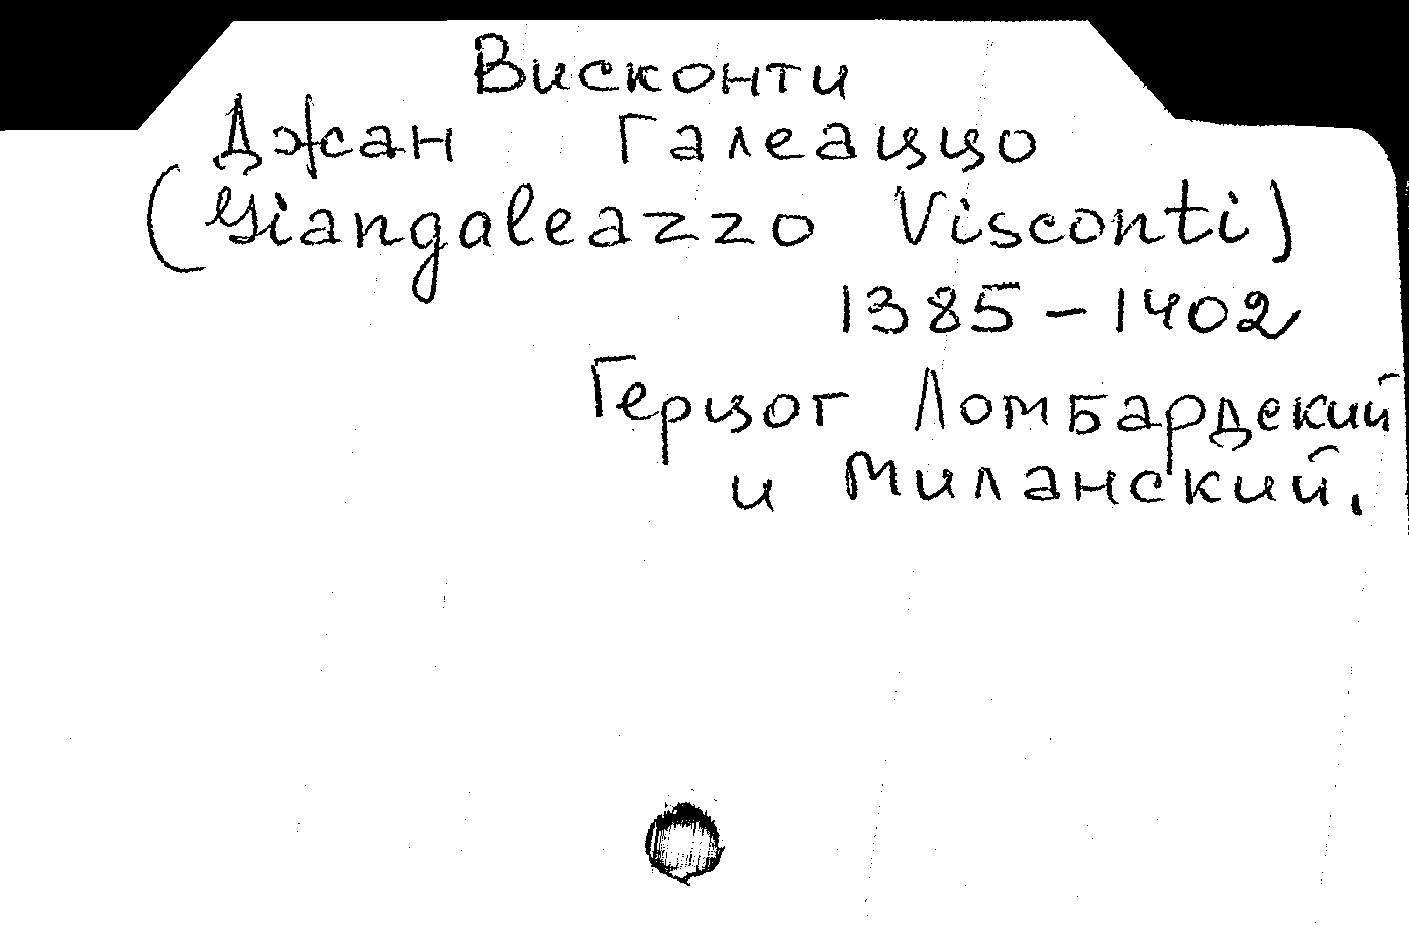 Висконти
Джан Галеаццо
(Giangaleazzo Visconti)
1385-1402
Герцог Ломбардский
и Миланский.